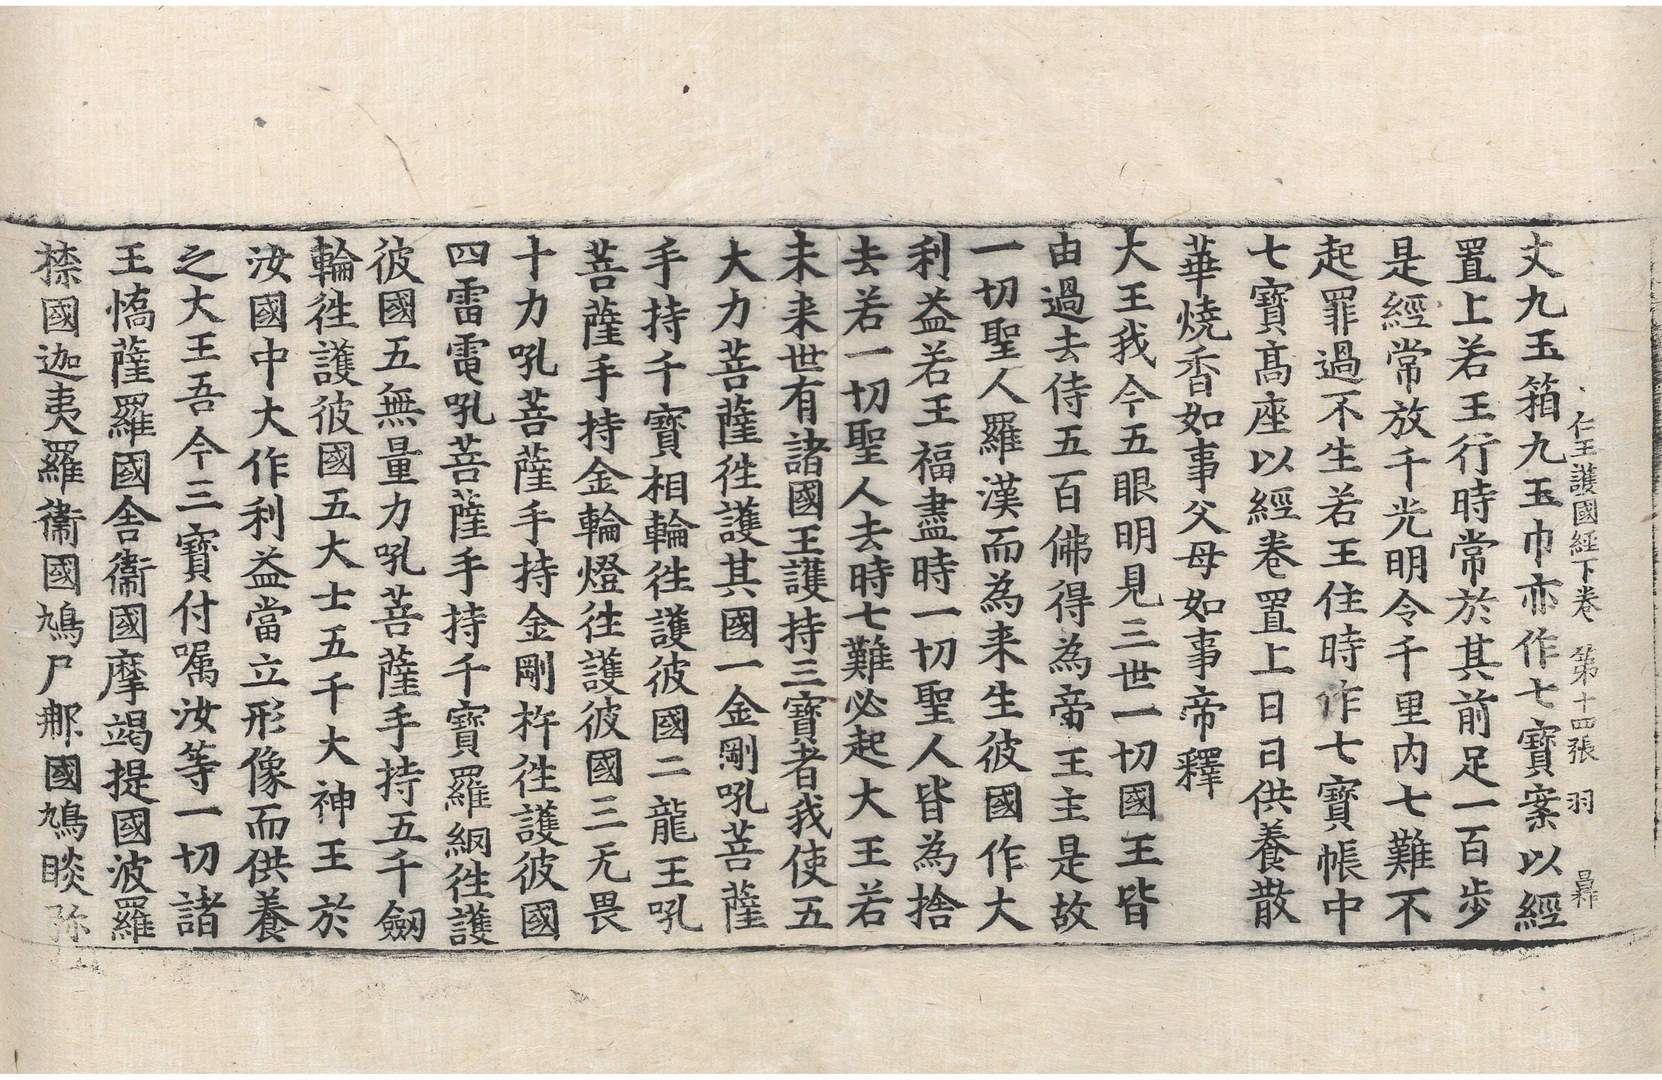 仁王護國經下卷 第十四張 羽
丈九玉箱九玉巾亦作七寶案以經
置上若王行時常於其前足一百步
是經常放千光明令千里內七難不
起罪過不生若王住時作七寶帳中
七寶高座以經卷置上日日供養散
華燒香如事父母如事帝釋
大王我今五眼明見三世一切國王皆
由過去侍五百佛得為帝王主是故
一切聖人羅漢而為来生彼國作大
利益若王福盡時一切聖人皆為捨
去若一切聖人去時七難必起大王若
未来世有諸國王護持三寶者我使五
大力菩薩徃護其國一金剛吼菩薩
手持千寶相輪徃護彼國二龍王吼
菩薩手持金輪燈徃護彼國三无畏
十力吼菩薩手持金剛杵徃護彼國
四雷電吼菩薩手持千寶羅網徃護
彼國五無量力吼菩薩手持五千劒
輪徃護彼國五大士五千大神王於
汝國中大作利益當立形像而供養
之大王吾今三寶付嘱汝等一切諸
王憍薩羅國舍衞國摩竭提國波羅
㮈國迦夷羅衞國鳩尸那國鳩睒弥